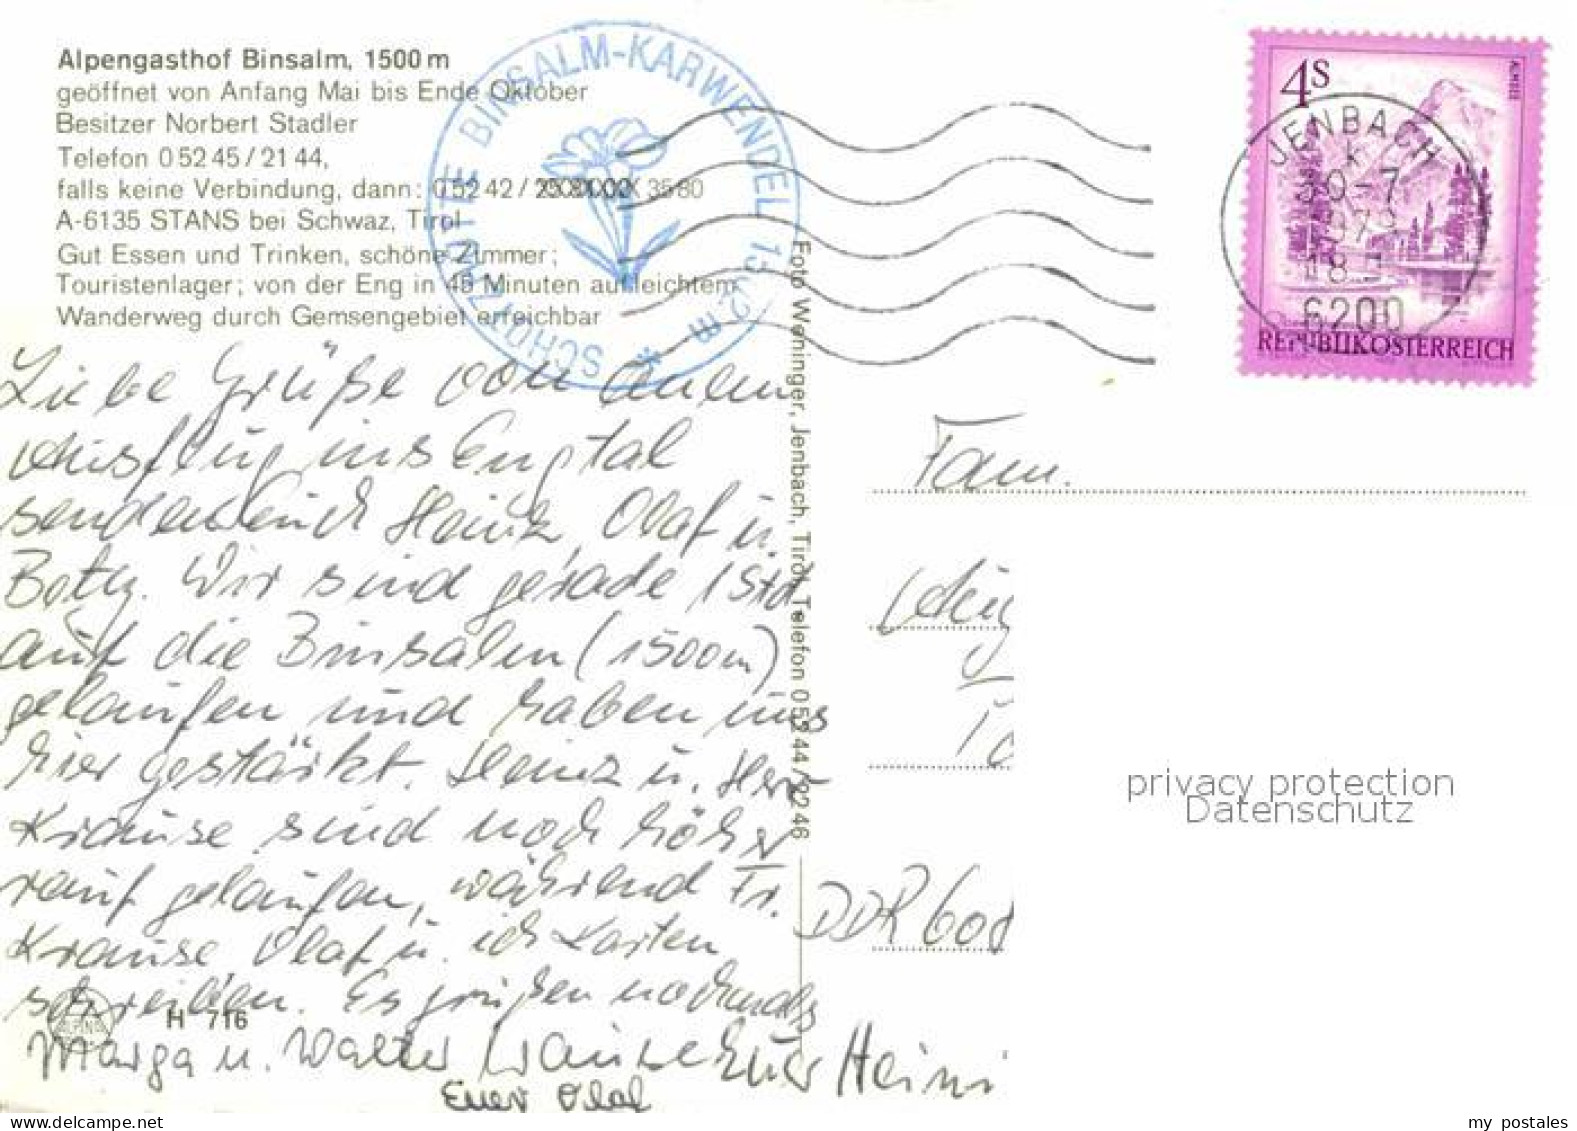 Alpengasthof Binsalm, 1500 m
geöffnet von Anfang Mai bis Ende Oktober
Besitzer Norbert Stadler
Telefon 0 52 45 / 21 44,
falls keine Verbindung, dann: 0 52 42 / 3580
A-6135 STANS bei Schwaz, Tirol
Gut Essen und Trinken, schöne Zimmer;
Touristenlager; von der Eng in 45 Minuten auf leichtem
Wanderweg durch Gemsengebiet erreichbar
SCHUTZHÜTTE BINSALM-KARWENDEL 15 02 m *
4S
ALMSEE
REPUBLIK ÖSTERREICH
JENBACH
k
30-7
1979
18
6200
Liebe Grüße von einem
Ausflug ins Engtal
senden Euch Heinz, Olaf u.
Betty. Wir sind gerade 1 Std.
auf die Binsalm (1500m)
gelaufen und haben uns
hier gestärkt. Heinz u. Herr
Krause sind noch höher
rauf gelaufen, während Fr.
Krause, Olaf u. ich Karten
schreiben. Es grüßen nochmals
Marga u. Walter Krause Eure Heini
Euer Olaf
H 716
ALPINA
Foto Weninger, Jenbach, Tirol, Telefon 0 52 44 / 22 46
Fam.
DDR 60
privacy protection
Datenschutz
delcampe.net
my_postales